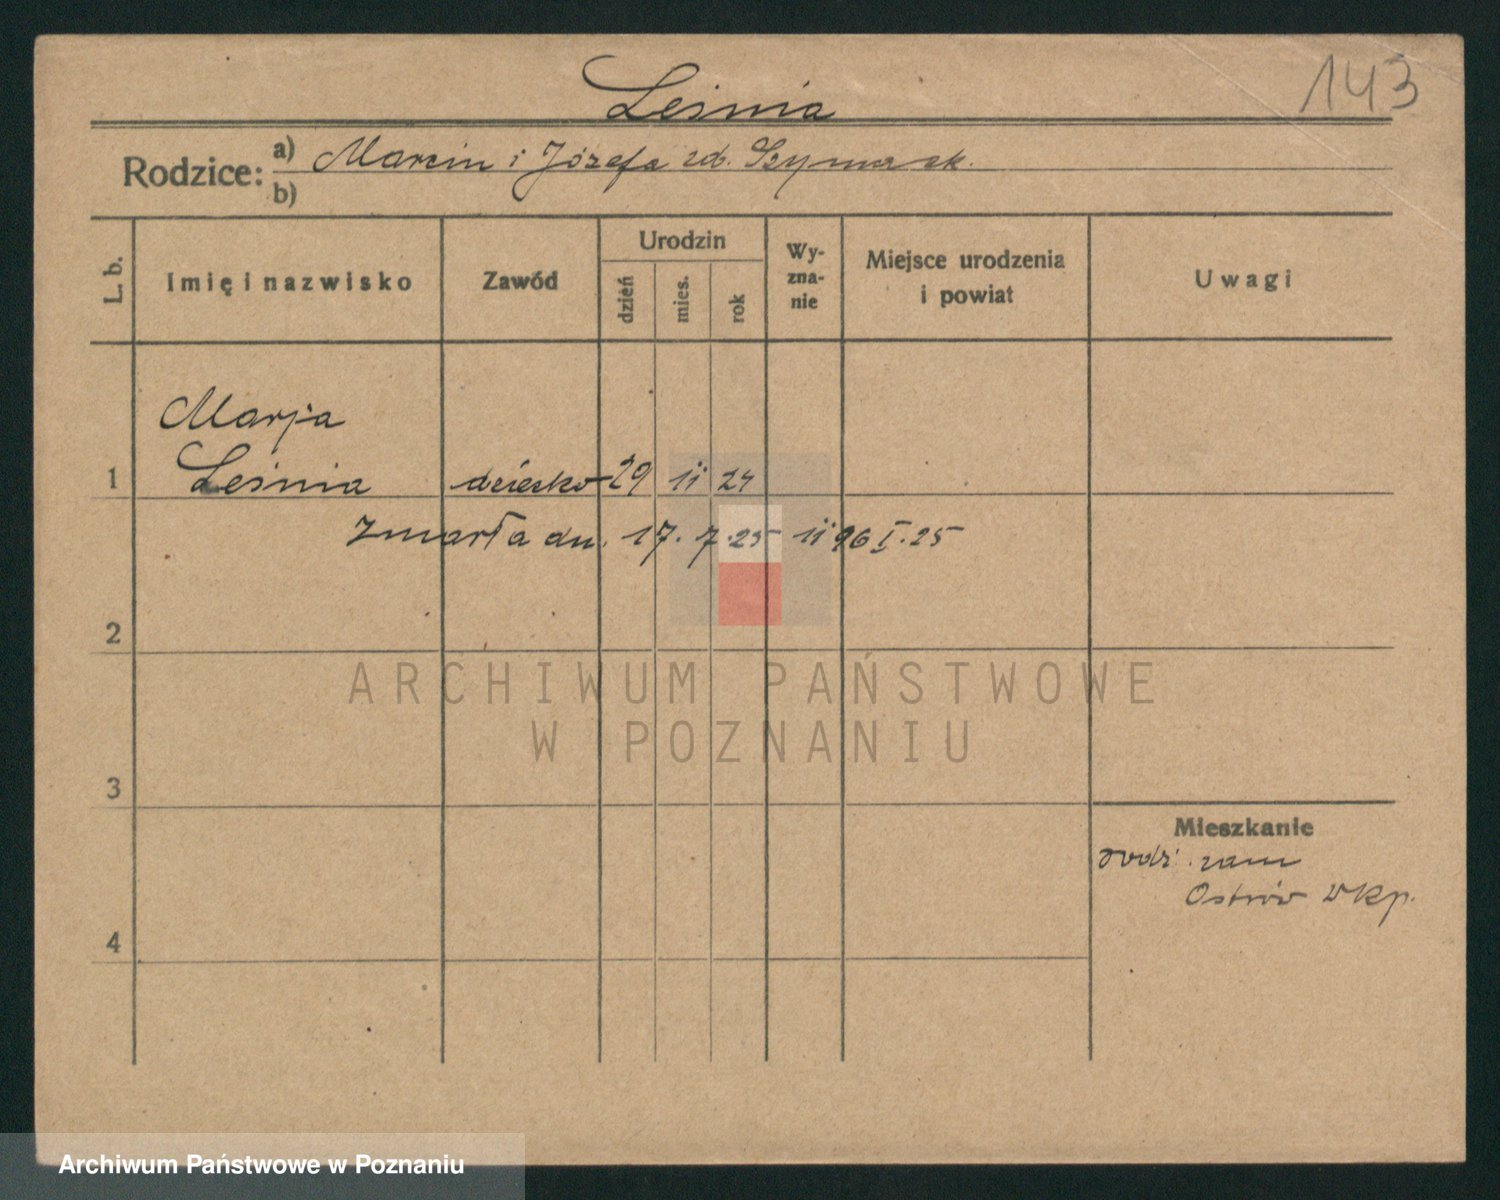 143
Leśnia
Rodzice: a) Marcin i Józefa zd. Szymczak.
b)
L. b.
Imię i nazwisko
Zawód
Urodzin
dzień
mies.
rok
Wy-
zna-
nie
Miejsce urodzenia
i powiat
Uwagi
Marja
1 Leśnia dziecko 29 11 24
Zmarła dn. 17. 7. 25 11 96 I. 25
2
3
4
Mieszkanie
rodz. zam
Ostrów wkp.
ARCHIWUM PAŃSTWOWE
W POZNANIU
Archiwum Państwowe w Poznaniu